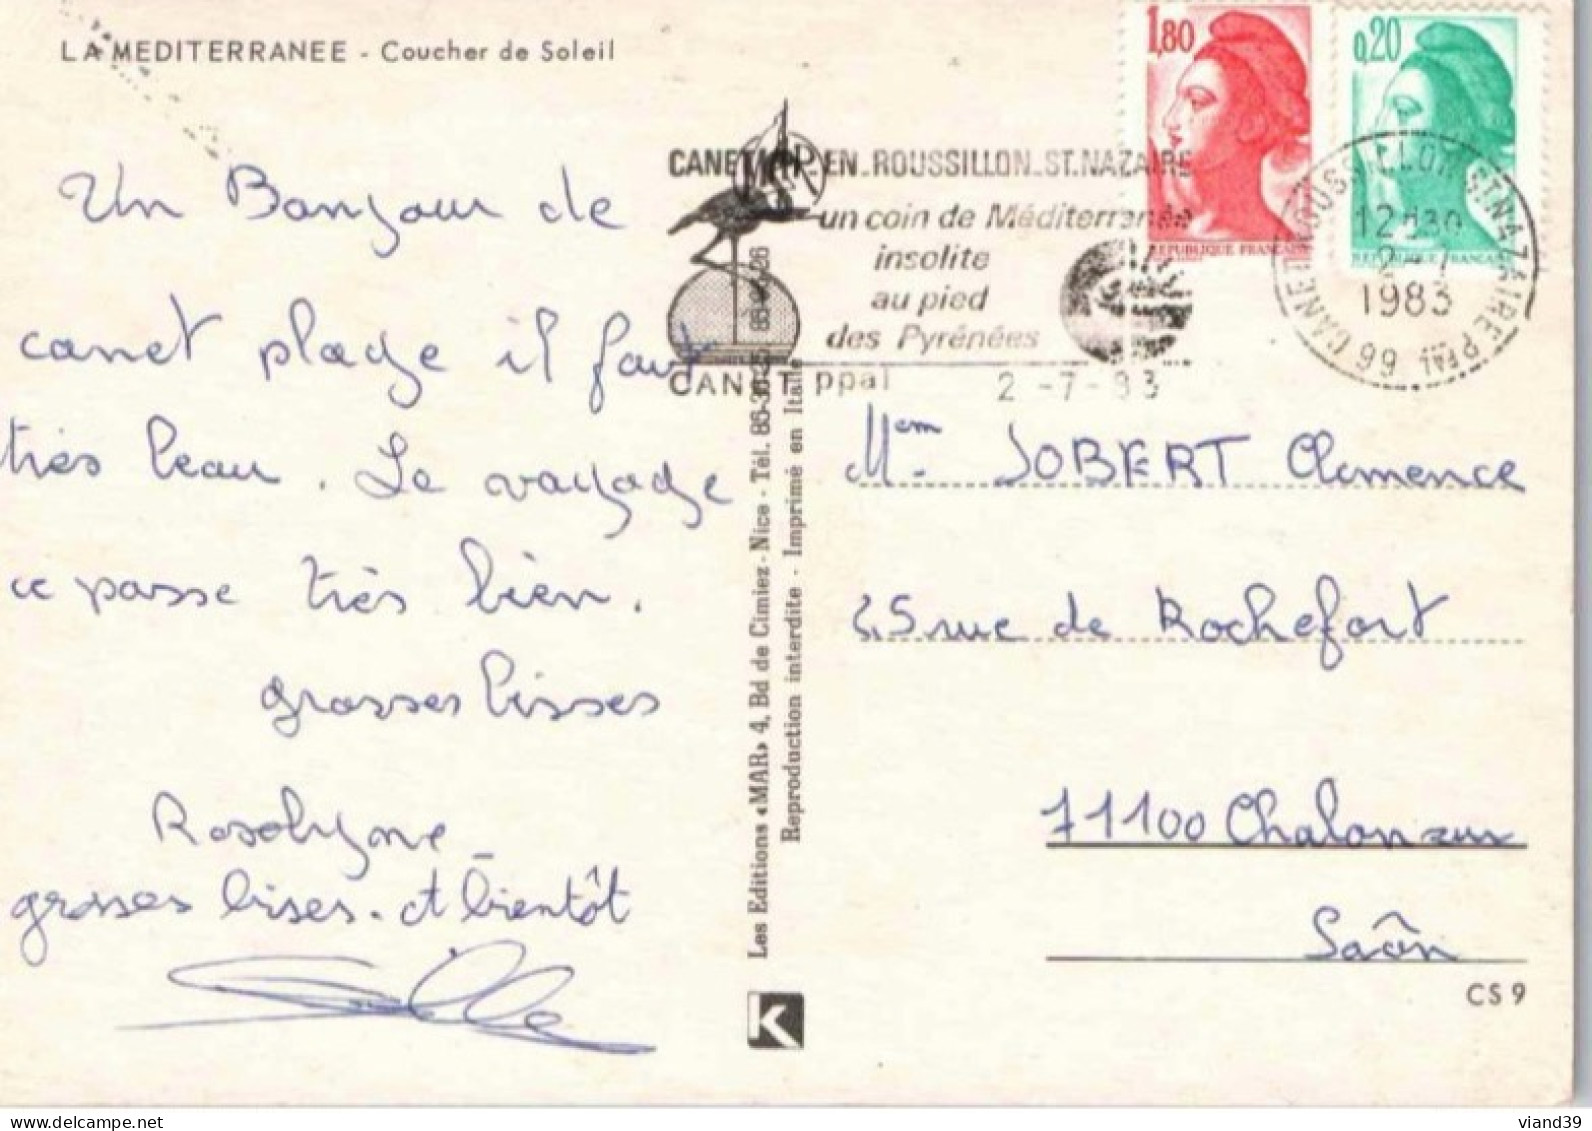 LA MEDITERRANEE - Coucher de Soleil
Un Bonjour de
canet plage il faut
très beau. Le voyage
ce passe très bien.
grosses bisses
Roselyne
grosses bises. et bientôt
CANET EN ROUSSILLON ST.NAZAIRE
un coin de Méditerranée
insolite
au pied
des Pyrénées
CANET ppal 2-7-83
1,80
REPUBLIQUE FRANCAISE
0,20
REPUBLIQUE FRANCAISE
66 CANET ROUSSILLON ST.NAZAIRE Pal
12H30
2-7
1983
Les Editions «MAR» 4, Bd de Cimiez - Nice - Tél.
Reproduction interdite - Imprimé en Italie
Mem JOBERT Clemence
25 rue de Rochefort
71100 Chalon sur
Saôn
K
CS 9
viand39